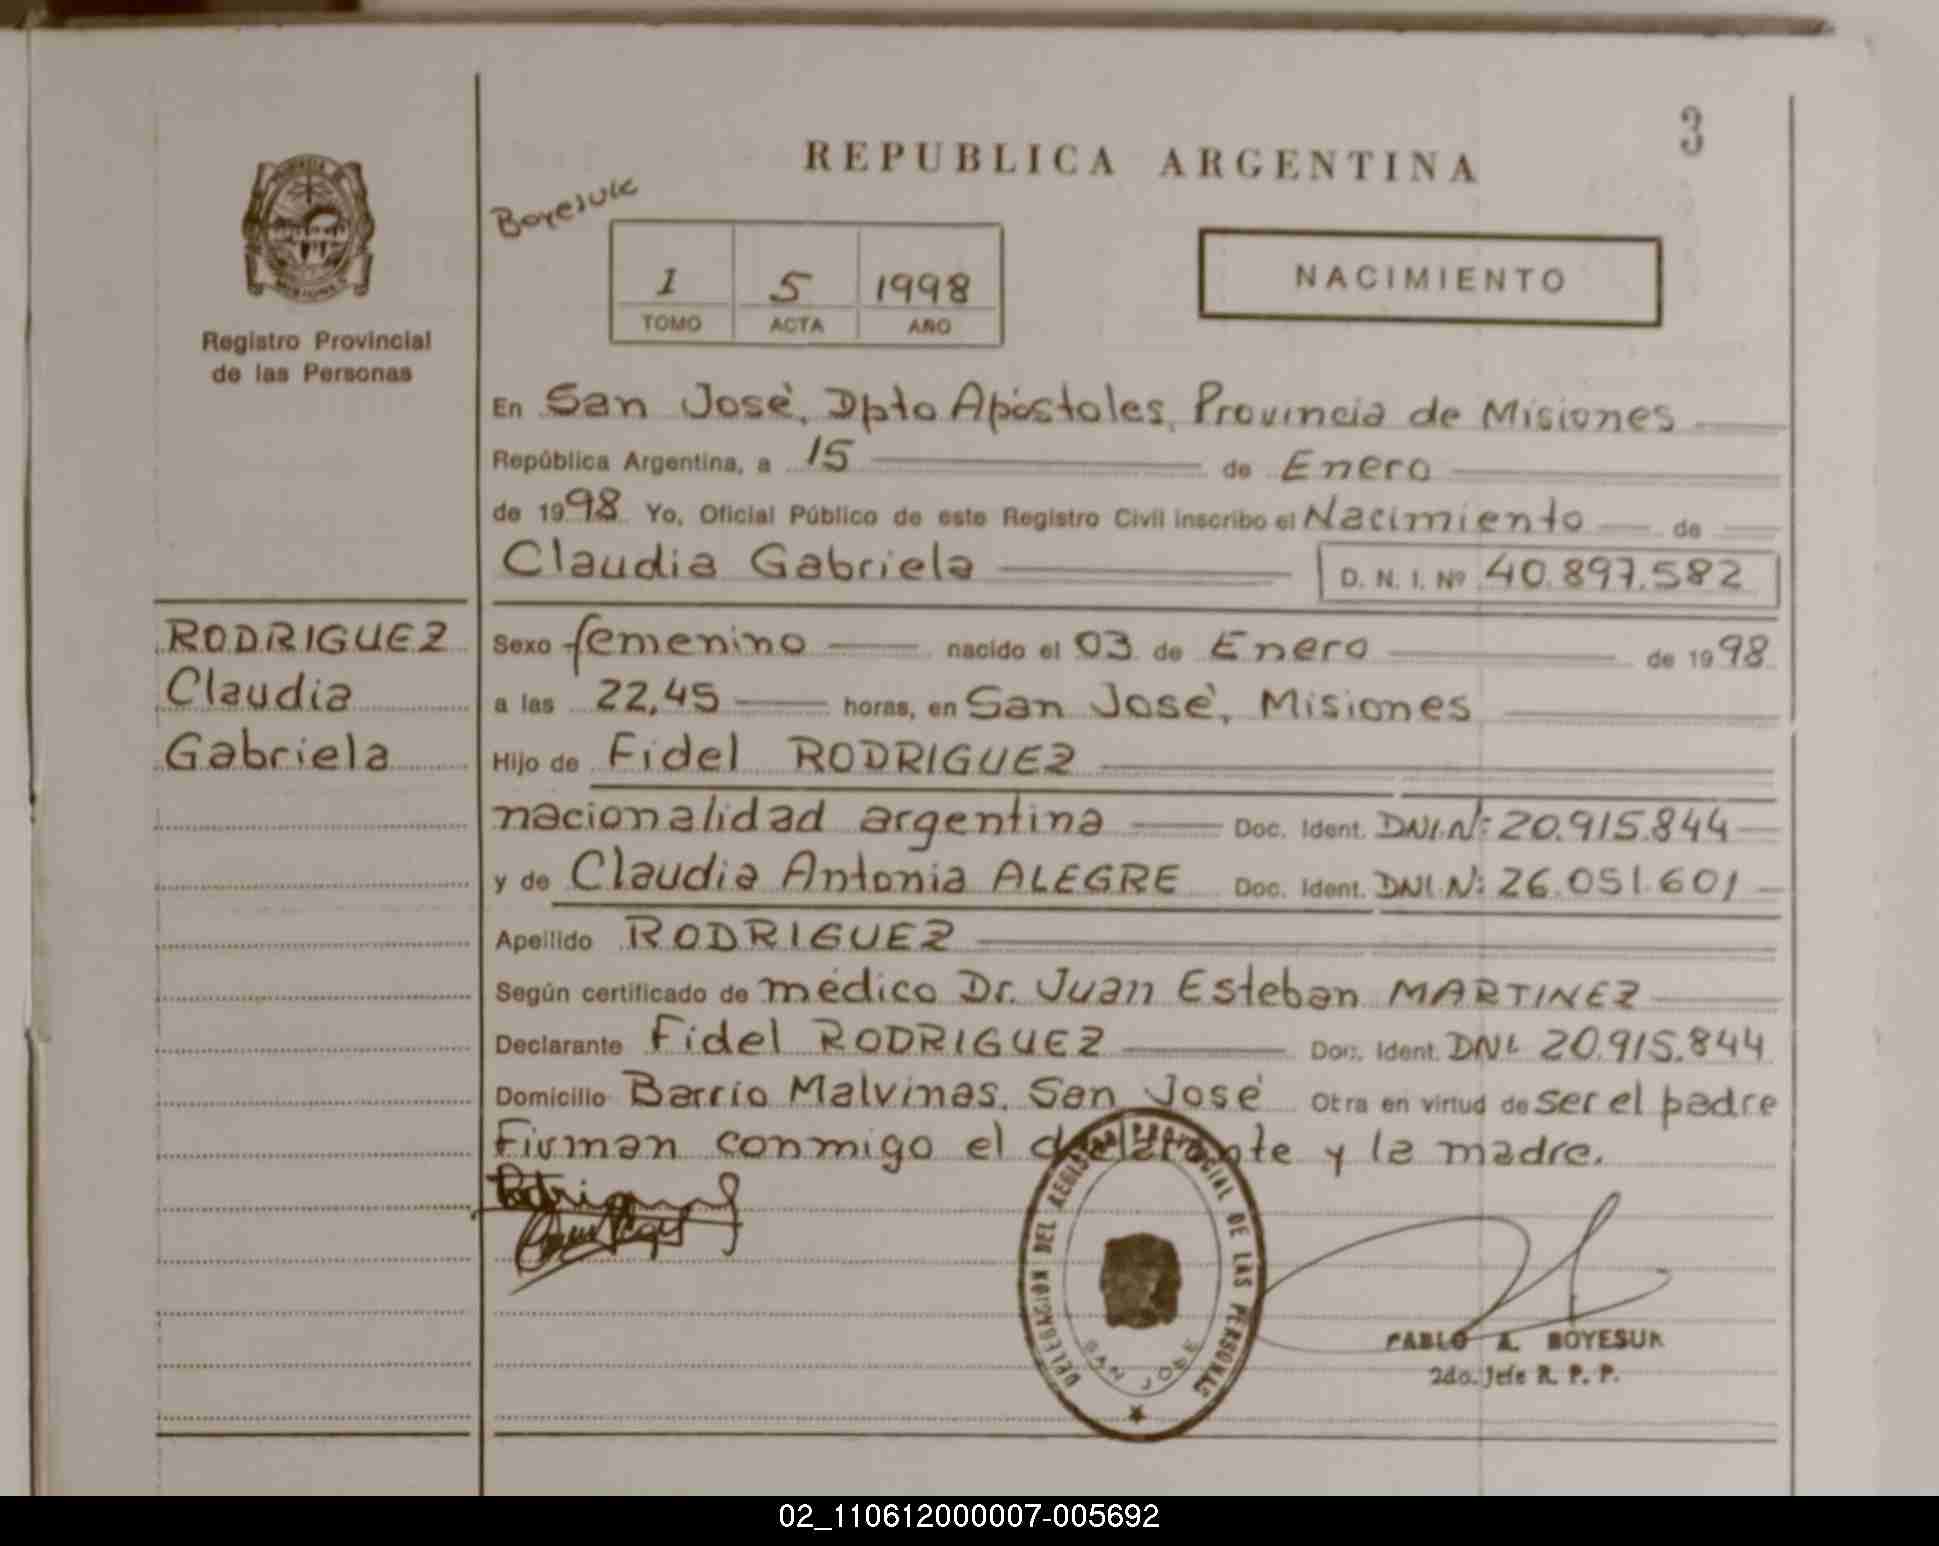 3
REPUBLICA ARGENTINA
Boyesuk
1 5 1998
TOMO ACTA AÑO
NACIMIENTO
Registro Provincial
de las Personas
En San José, Dpto Apóstoles, Provincia de Misiones
República Argentina, a 15 de Enero
de 1998 Yo, Oficial Público de este Registro Civil inscribo el Nacimiento de
Claudia Gabriela D. N. I. Nº 40.897.582
RODRIGUEZ
Claudia
Gabriela
Sexo femenino nacido el 03 de Enero de 1998
a las 22,45 horas, en San José, Misiones
Hijo de Fidel RODRIGUEZ
nacionalidad argentina Doc. Ident. DNI.Nº: 20.915.844
y de Claudia Antonia ALEGRE Doc. Ident. DNI.Nº: 26.051.601
Apellido RODRIGUEZ
Según certificado de médico Dr. Juan Esteban MARTINEZ
Declarante Fidel RODRIGUEZ Doc. Ident. DNI. 20.915.844
Domicilio Barrio Malvinas, San José Otra en virtud de ser el padre
Firman conmigo el declarante y la madre.
DELEGACION DEL REGISTRO PROVINCIAL DE LAS PERSONAS
SAN JOSE
PABLO A. BOYESUK
2do. Jefe R. P. P.
02_110612000007-005692